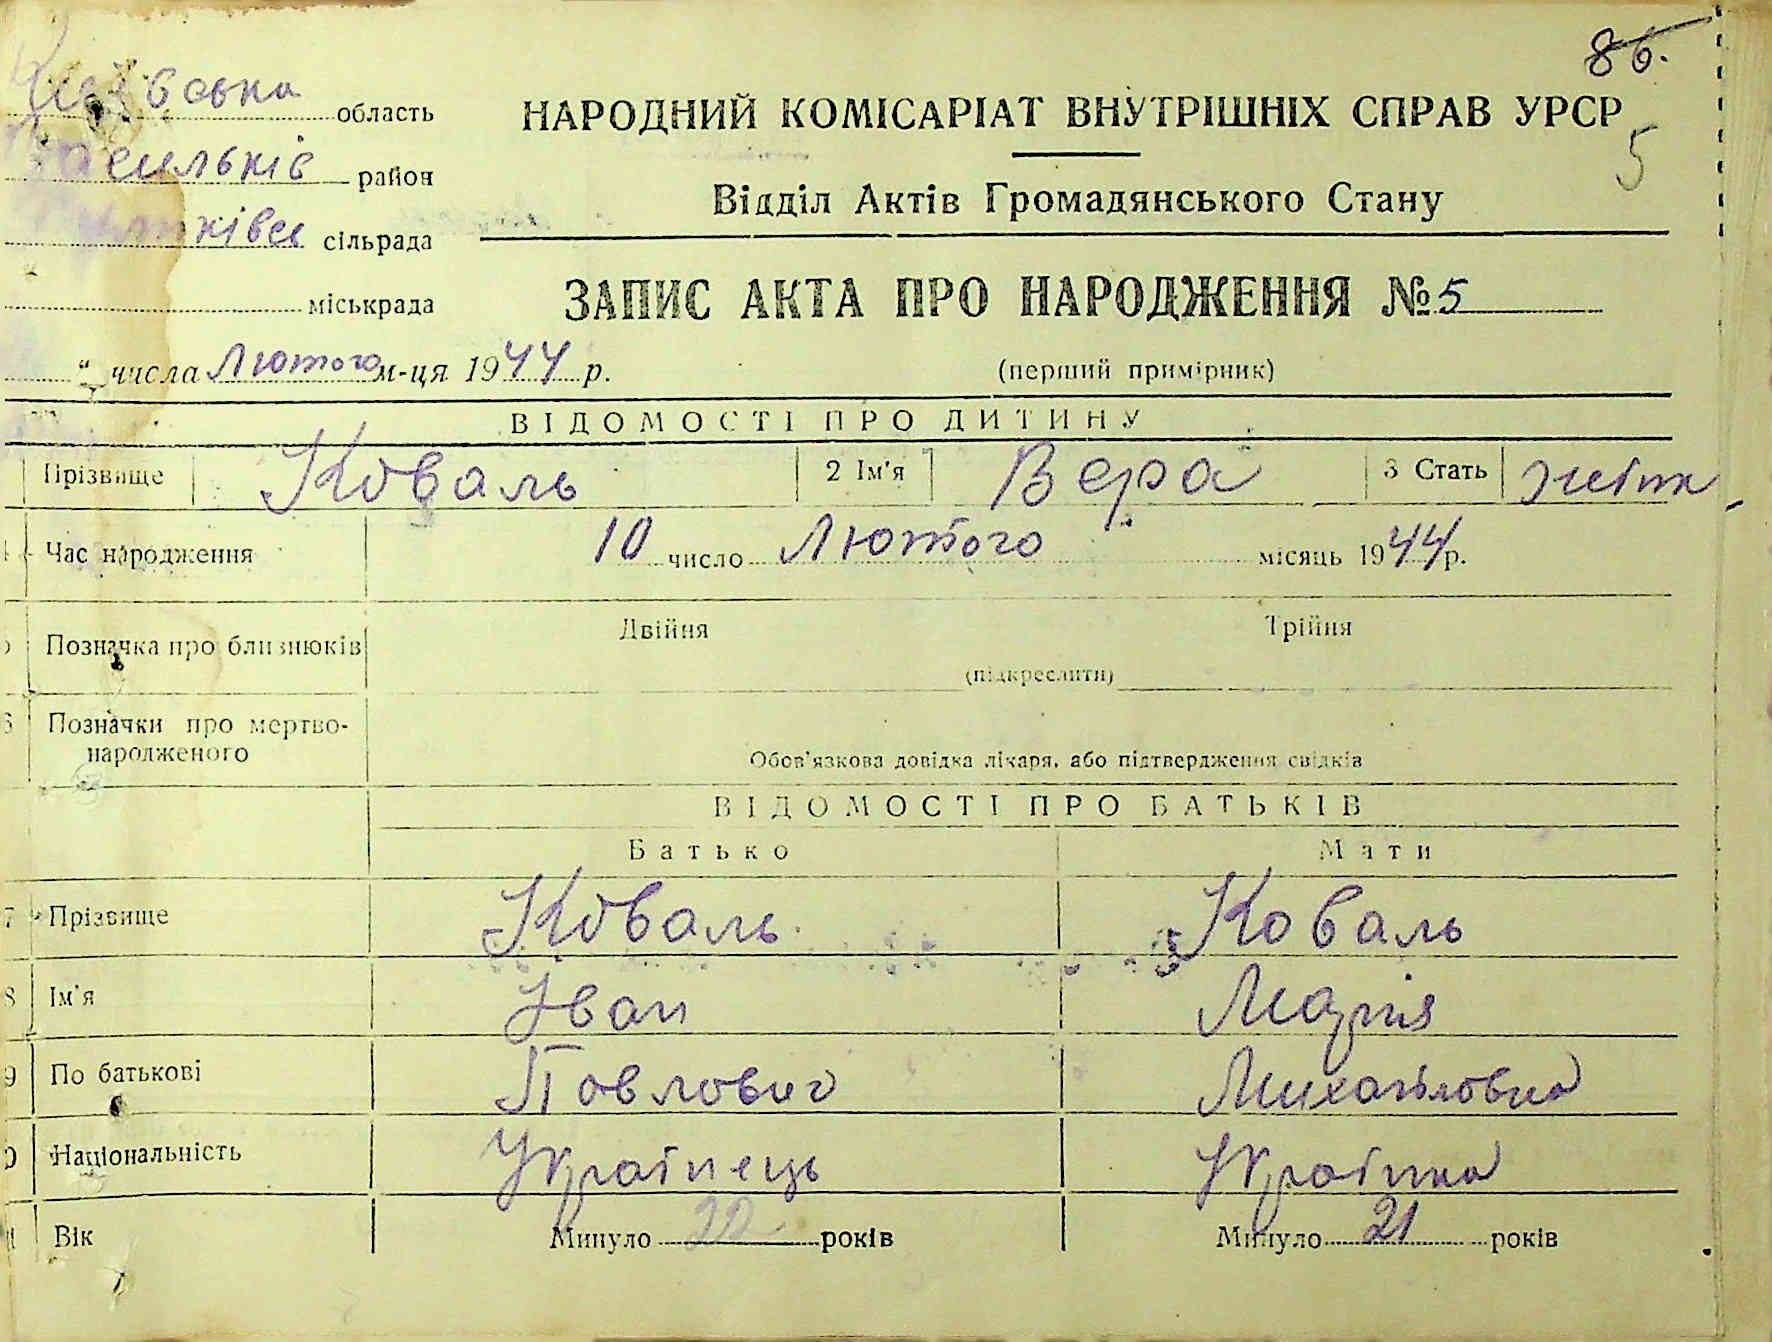 86.
Київська область
НАРОДНИЙ КОМІСАРІАТ ВНУТРІШНІХ СПРАВ УРСР
5
Васильків район
Відділ Актів Громадянського Стану
сільрада
міськрада
ЗАПИС АКТА ПРО НАРОДЖЕННЯ № 5
" числа Лютого м-ця 1944 р.
(перший примірник)
ВІДОМОСТІ ПРО ДИТИНУ
Прізвище Коваль 2 Ім'я Вера 3 Стать жіноч
4 Час народження 10 число Лютого місяць 1944 р.
Двійня Трійня
Позначка про близнюків
(підкреслити)
6 Позначки про мертво-
народженого
Обов'язкова довідка лікаря, або підтвердження свідків
ВІДОМОСТІ ПРО БАТЬКІВ
Батько Мати
7 Прізвище Коваль Коваль
8 Ім'я Іван Марія
9 По батькові Павлович Михайловна
0 Національність Українець Українка
Вік Минуло 22 років Минуло 21 років